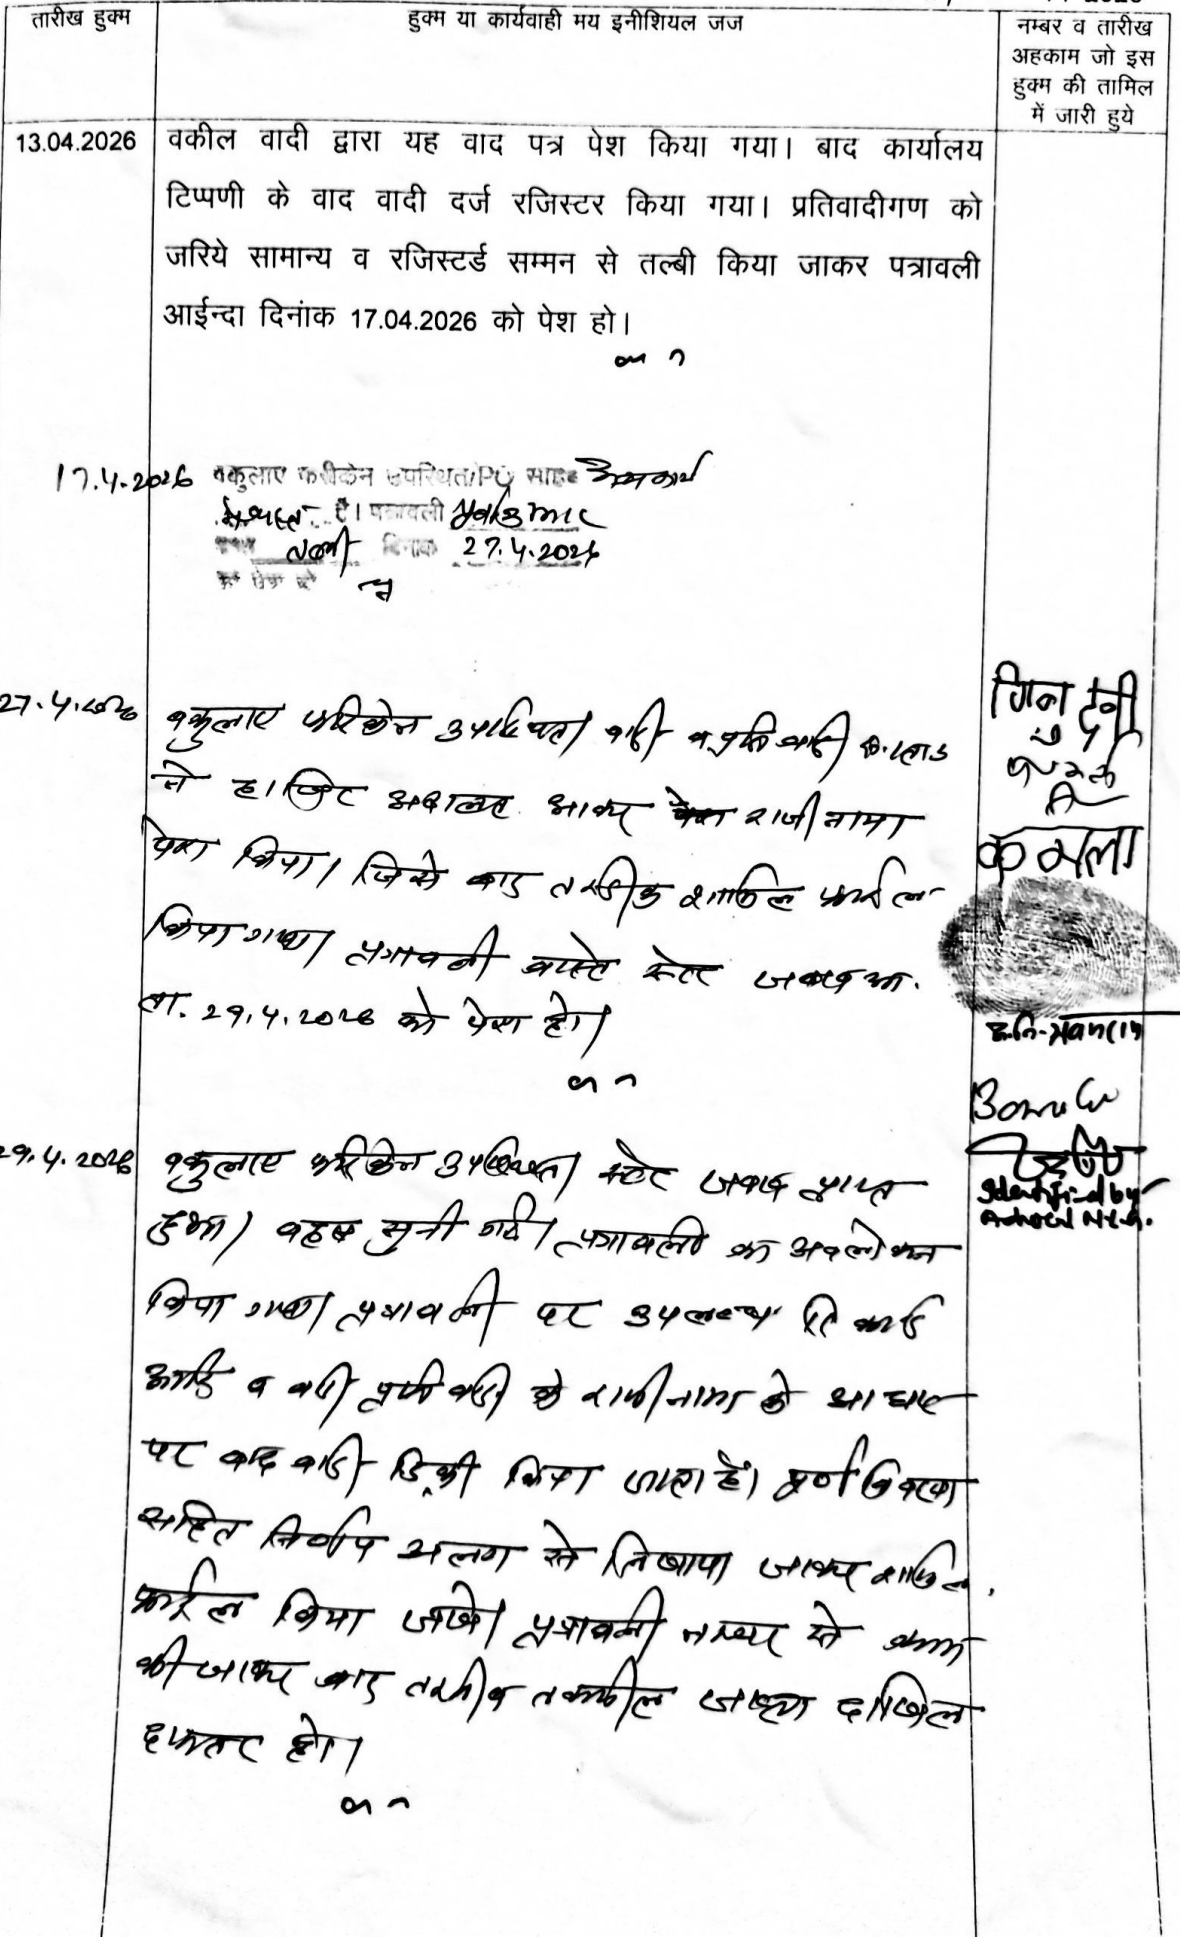 तारीख हुक्म
हुक्म या कार्यवाही मय इनीशियल जज
नम्बर व तारीख
अहकाम जो इस
हुक्म की तामिल
में जारी हुये
13.04.2026
वकील वादी द्वारा यह वाद पत्र पेश किया गया। बाद कार्यालय
टिप्पणी के वाद वादी दर्ज रजिस्टर किया गया। प्रतिवादीगण को
जरिये सामान्य व रजिस्टर्ड सम्मन से तल्बी किया जाकर पत्रावली
आईन्दा दिनांक 17.04.2026 को पेश हो।
17.4.2026 वकुलाए फरीकेन उपस्थित। PO साहब
है। पत्रावली
दिनांक 27.4.2026
को पेश हो
27.4.2026
वकुलाए फरिकेन उपस्थित। वादी व प्रतिवादी
ने हाजिर अदालत आकर राजीनामा
पेश किया। जिसे बाद तस्दीक शामिल फाईल
किया गया। पत्रावली वास्ते स्टेट जवाब
ता. 29.4.2026 को पेश हो।
देवी
कमला
29.4.2026
वकुलाए फरिकेन उपस्थित। स्टेट जवाब प्राप्त
हुआ। बहस सुनी गई। पत्रावली का अवलोकन
किया गया। पत्रावली पर उपलब्ध रिकार्ड
आदि व वादी प्रतिवादी के राजीनामा के आधार
पर वाद वादी डिक्री किया जाता है। पूर्ण विवरण
सहित निर्णय अलग से लिखाया जाकर शामिल
फाईल किया जावे। पत्रावली नम्बर से कम
की जाकर बाद तरतीब तकमील जाब्ता दाखिल
दफतर हो।
Identified by